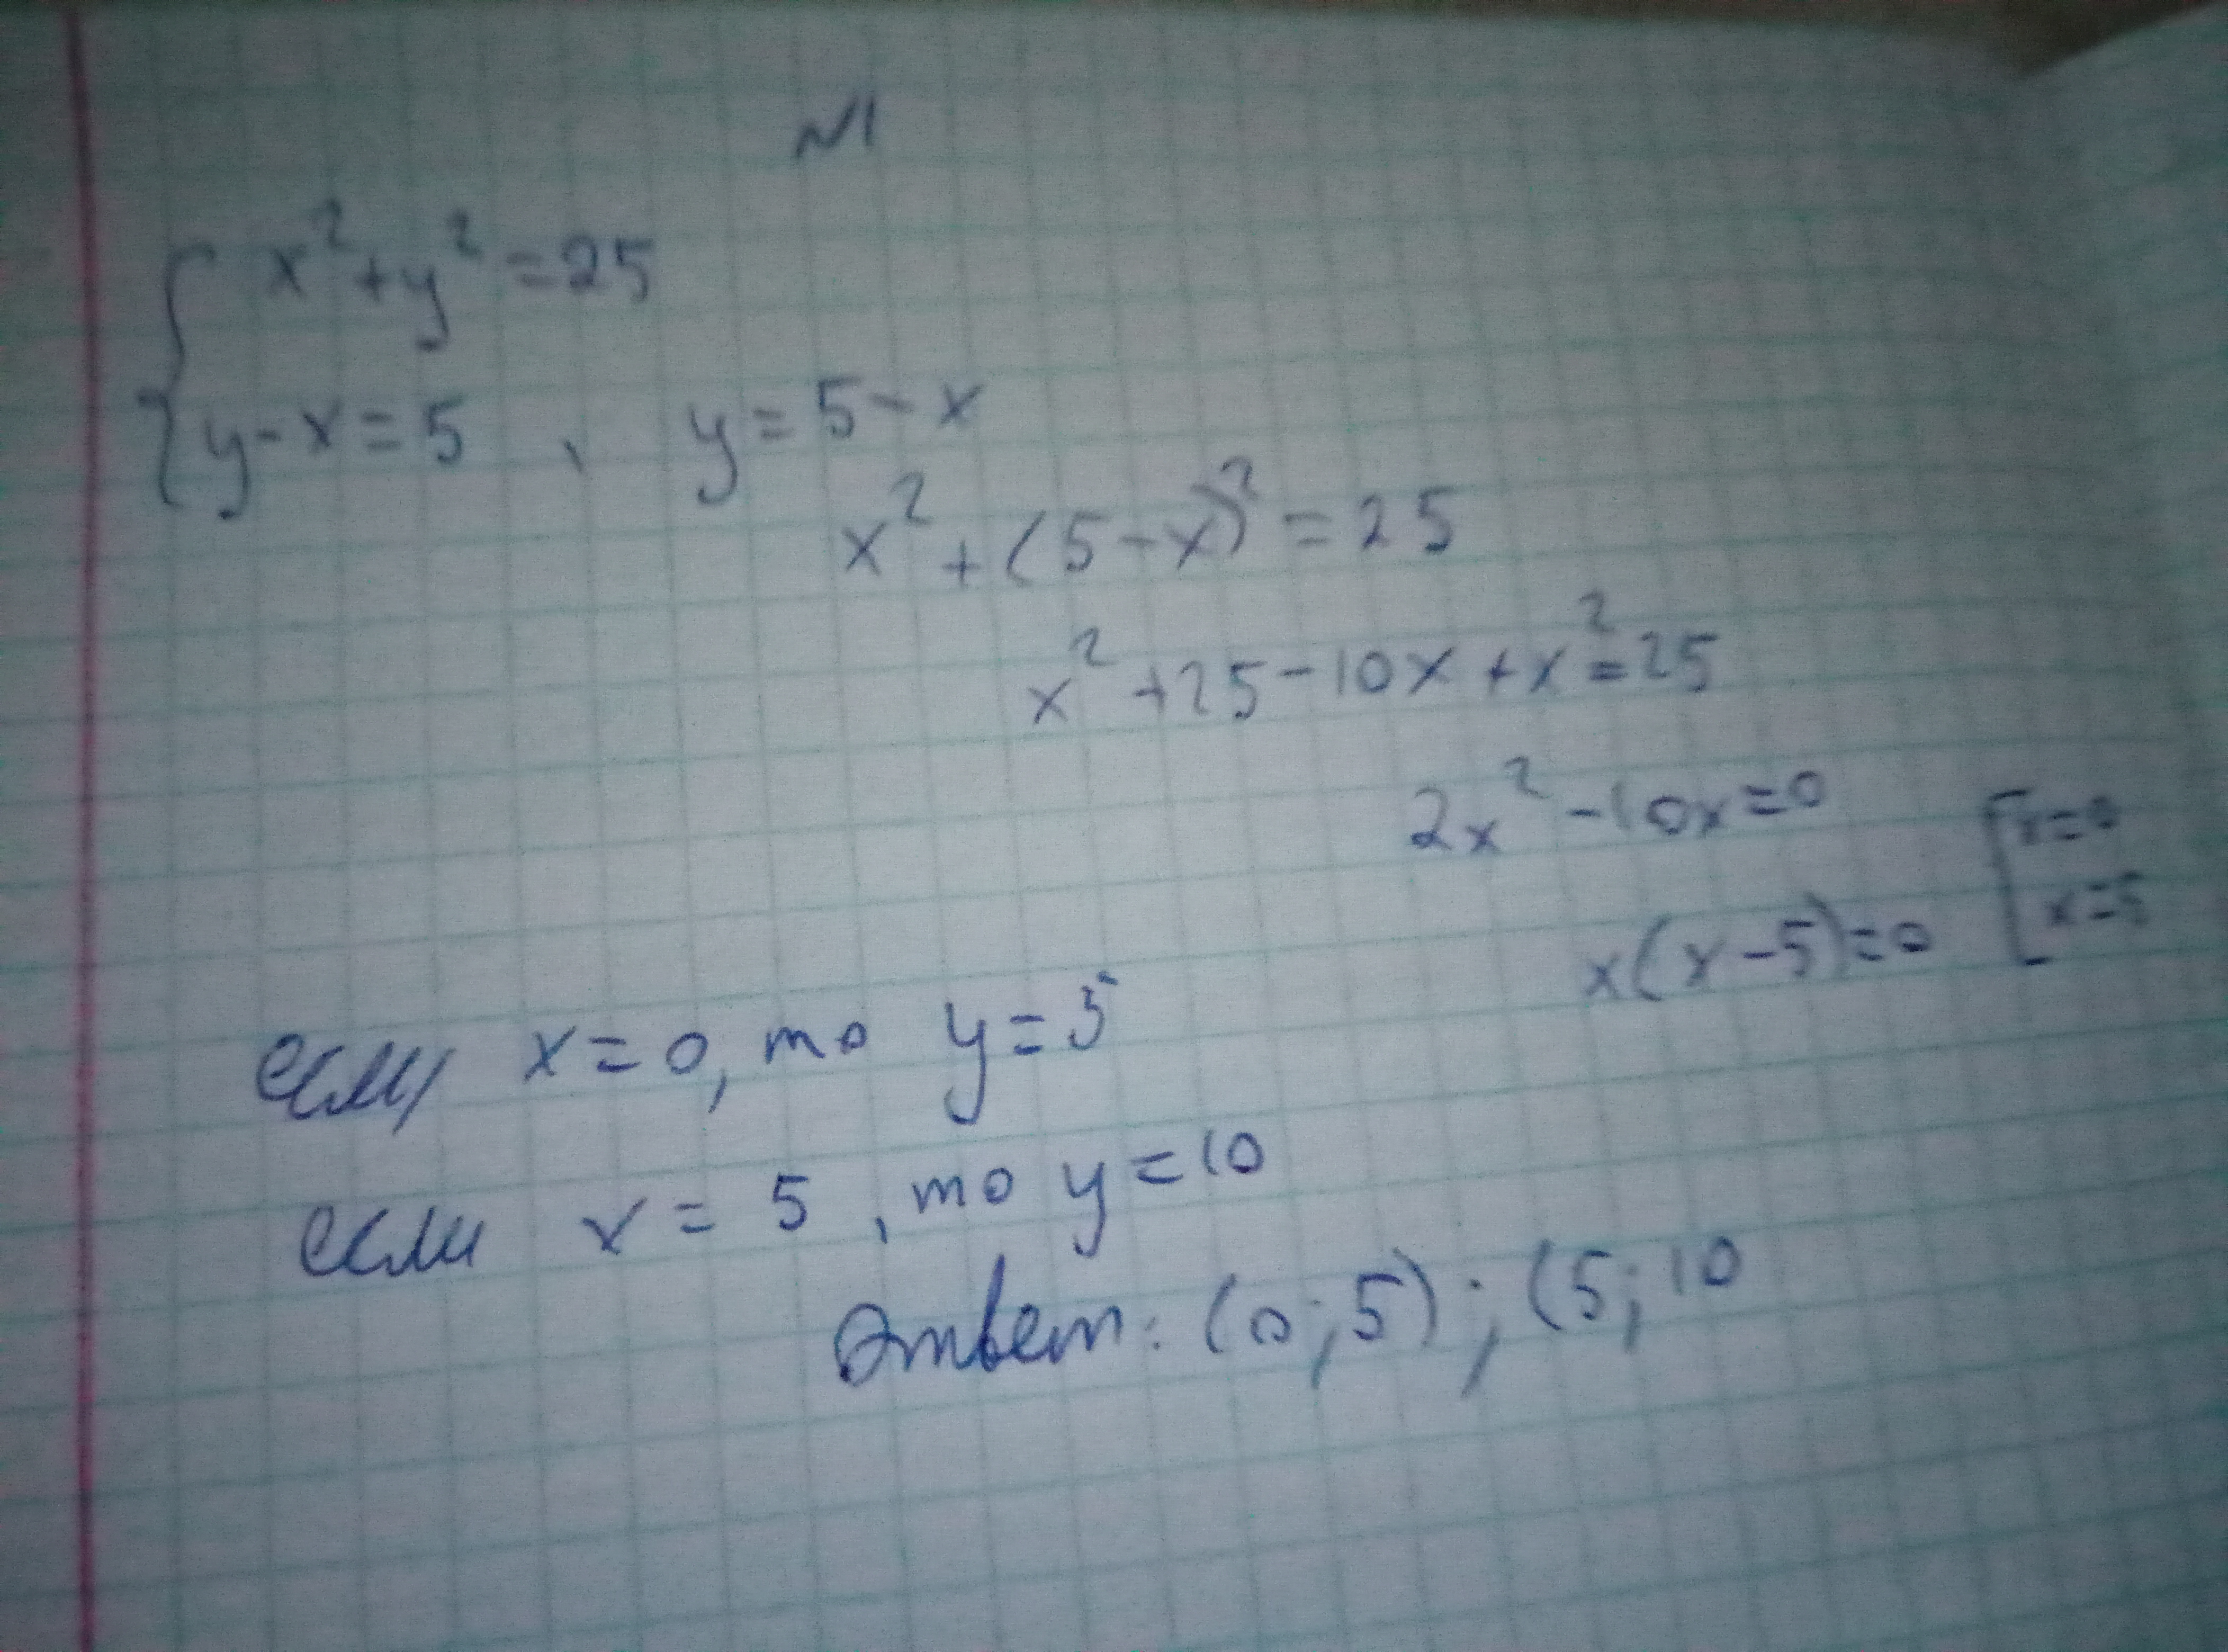 N1
x²+y²=25
y-x=5 , y=5-x
x²+(5-x)²=25
x²+25-10x+x²=25
2x²-10x=0
x(x-5)=0
x=0
x=5
если x=0, то y=5
если x=5, то y=10
Ответ: (0;5); (5;10